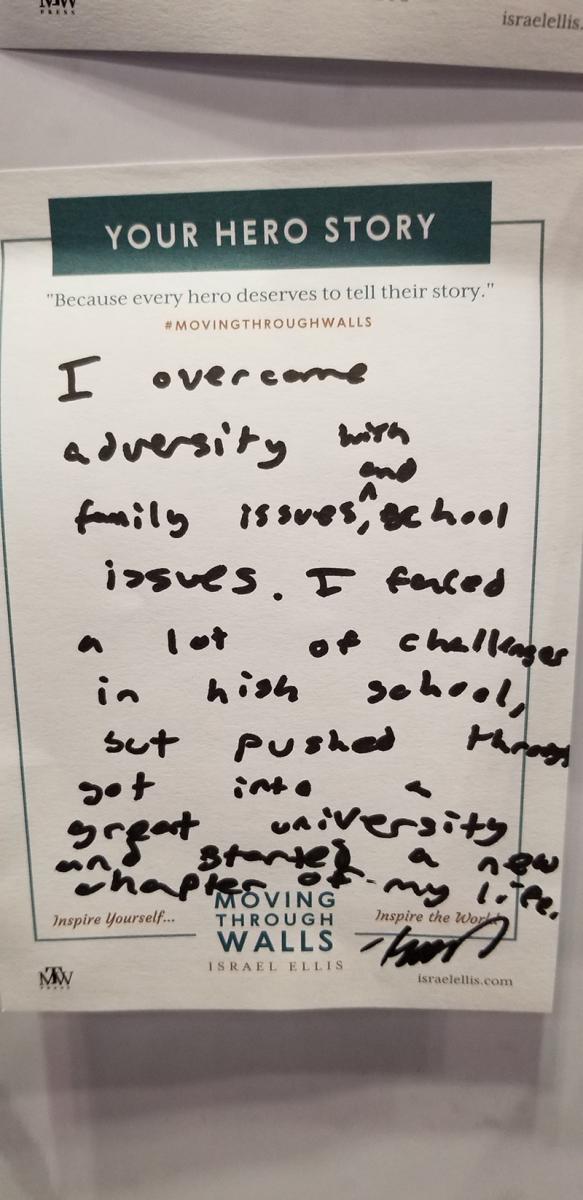 MTW
PRESS
israelellis.
YOUR HERO STORY
"Because every hero deserves to tell their story."
#MOVINGTHROUGHWALLS
I overcame
adversity with
and
family issues, ^ school
issues. I faced
a lot of challenges
in high school,
but pushed through
got into a
great university
and started a new
chapter of my life.
Inspire Yourself...
MOVING
THROUGH
WALLS
ISRAEL ELLIS
Inspire the World
MTW
PRESS
israelellis.com